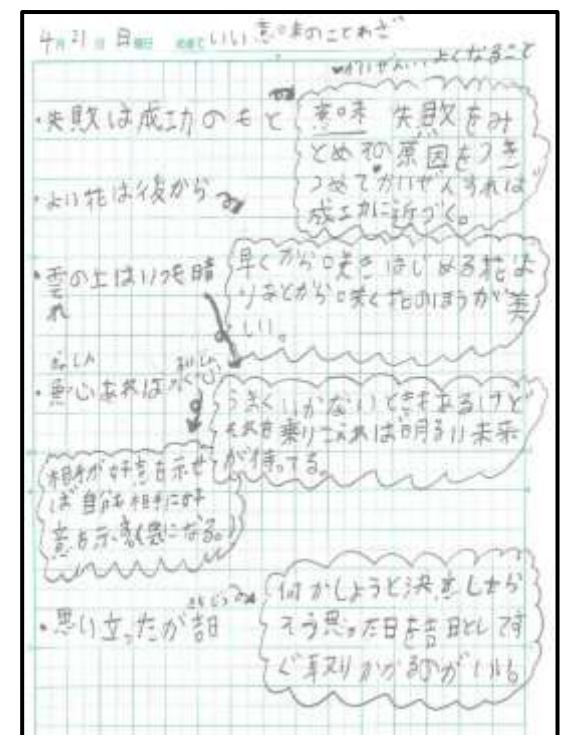 4月21日 日曜日 めあて いい意味のことわざ
かいぜん…よくなること
・失敗は成功のもと
意味 失敗をみ
とめその原因をつき
つめてかいぜんすれば
成功に近づく。
・よい花は後から
早くから咲きはじめる花よ
りあとから咲く花のほうが美
しい。
・雲の上はいつも晴
れ
うまくいかないときもあるけど
それを乗りこえれば明るい未来
が待ってる。
・魚心あれば水心
相手が好意を示せ
ば自分も相手に好
意を示す気になる。
・思い立ったが吉日
何かしようと決意したら
そう思った日を吉日としてす
ぐ取りかかるのがいい。